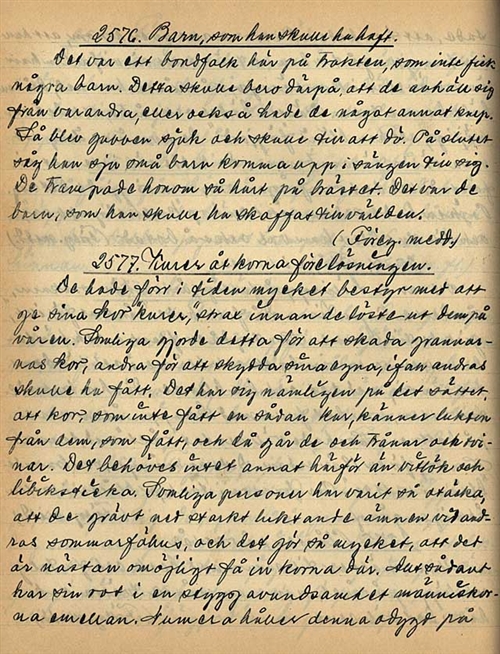 2576. Barn, som han skulle ha haft.
Det var ett bondfolk här på trakten, som inte fick
några barn. Detta skulle bero därpå, att de avhöll sig
från varandra, eller också hade de något annat knep.
Så blev gubben sjuk och skulle till att dö. På slutet
såg han sju små barn komma upp i sängen till sig.
De trampade honom så hårt på bröstet. Det var de
barn, som han skulle ha skaffat till världen.
(Föreg. medd.)
2577. Kurer åt korna före lösningen.
De hade förr i tiden mycket bestyr med att
ge sina kor "kurer", strax innan de löste ut dem på
våren. Somliga gjorde detta för att skada grannar-
nas kor, andra för att skydda sina egna, ifall andras
skulle ha fått. Det har sig nämligen på det sättet,
att kor, som inte fått en sådan kur, känner lukten
från dem, som fått, och då går de och trånar och tvi-
nar. Det behöves intet annat härför än vitlök och
libbsticka. Somliga personer har varit så otäcka,
att de grävt ned starkt luktande ämnen vid and-
ras sommarfähus, och det gör så mycket, att det
är nästan omöjligt få in korna där. Allt sådant
har sin rot i en stygg avundsamhet människor-
na emellan. Numera håller denna odygd på